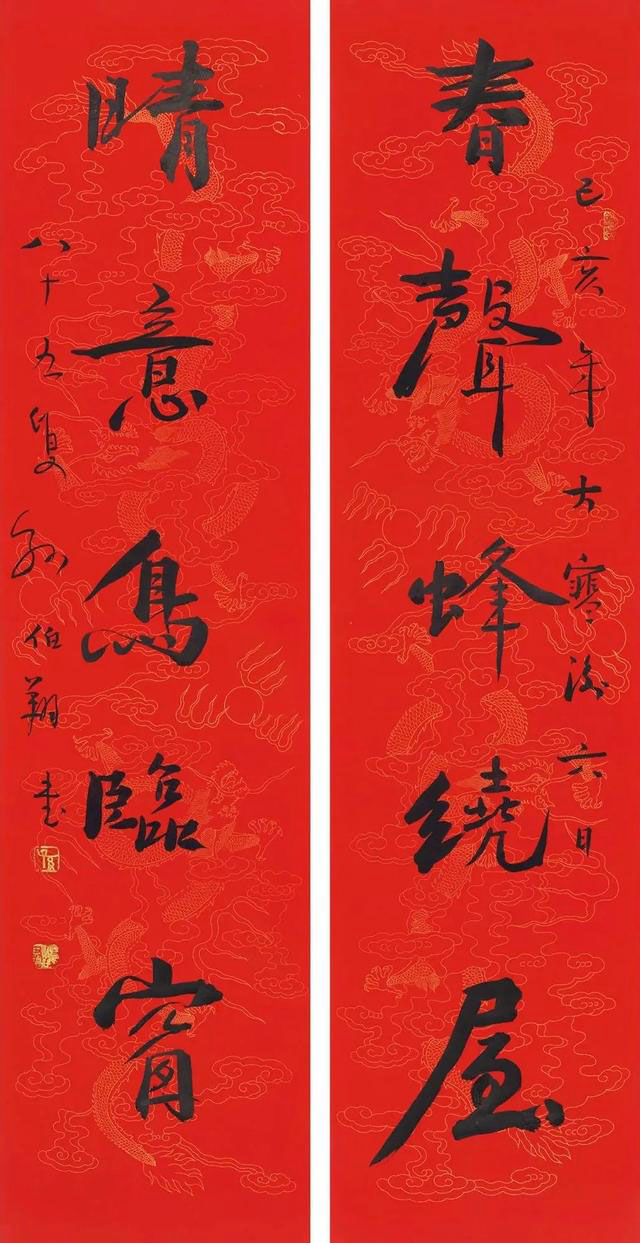 春聲蜂繞屋
己亥年大寒後六日
晴意鳥臨窗
八十五叟孫伯翔書